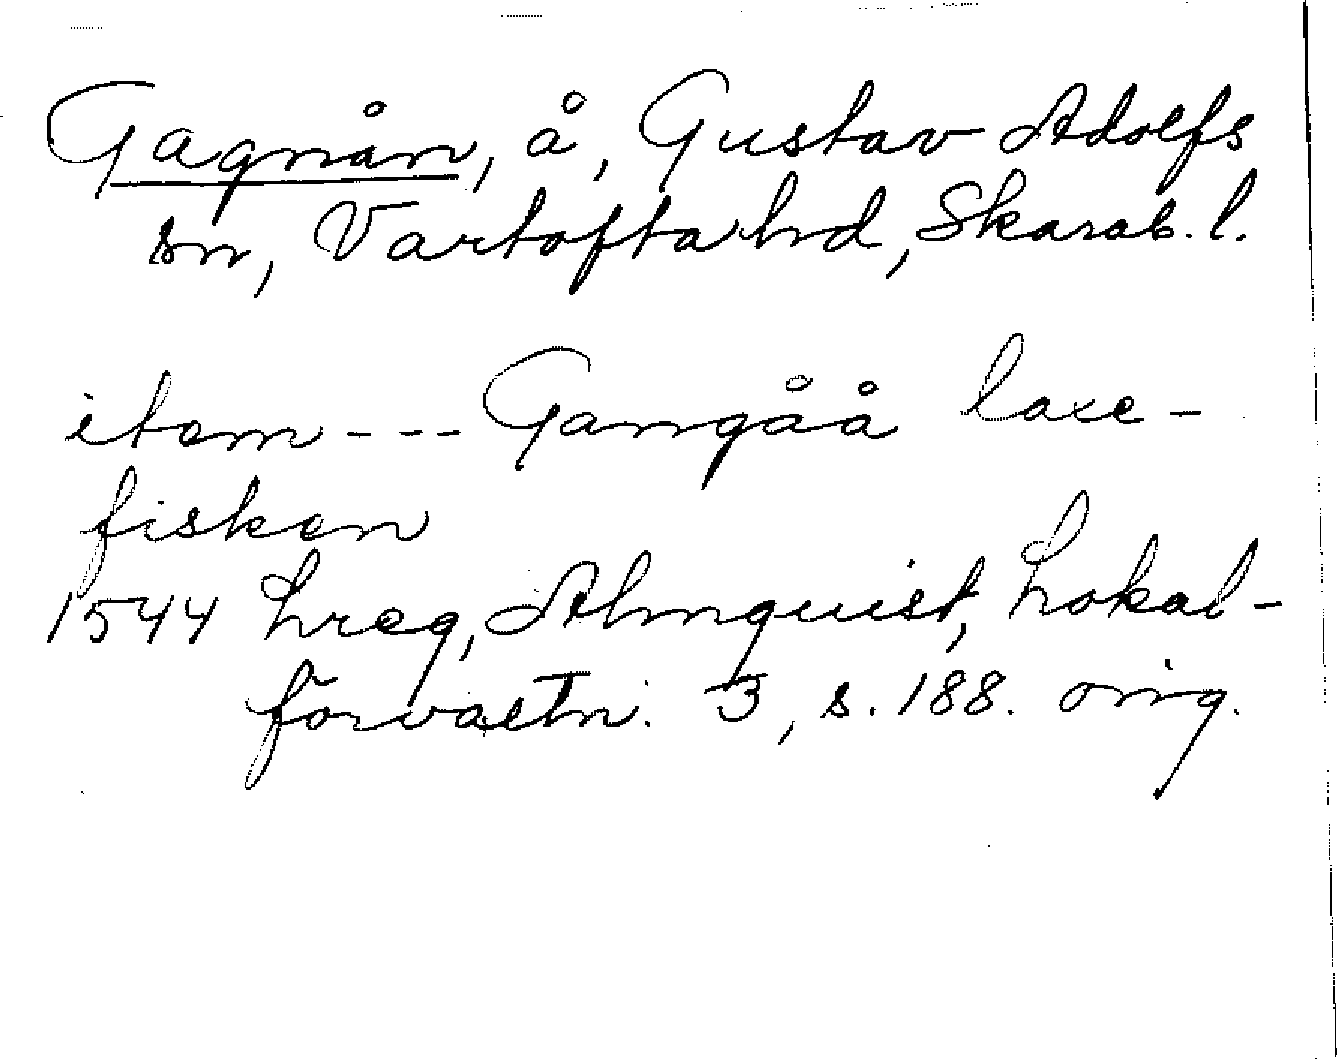 Gagnån, å, Gustav Adolfs
sn, Vartofta hd, Skarab. l.
item --- Gangåå laxe-
fisken
1544 hreg, Almquist, Lokal-
förvaltn. 3, s. 188. orig.